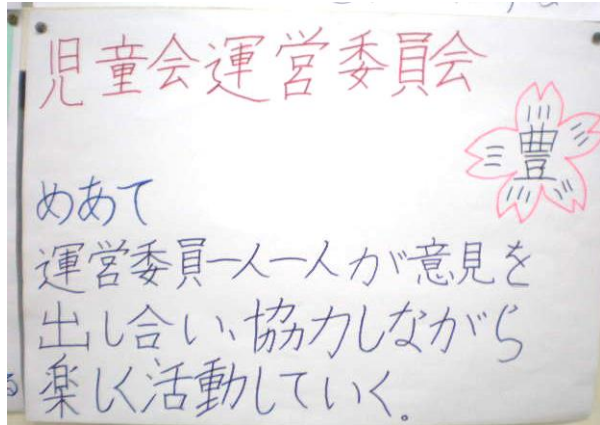 児童会運営委員会
豊
めあて
運営委員一人一人が意見を
出し合い、協力しながら
楽しく活動していく。